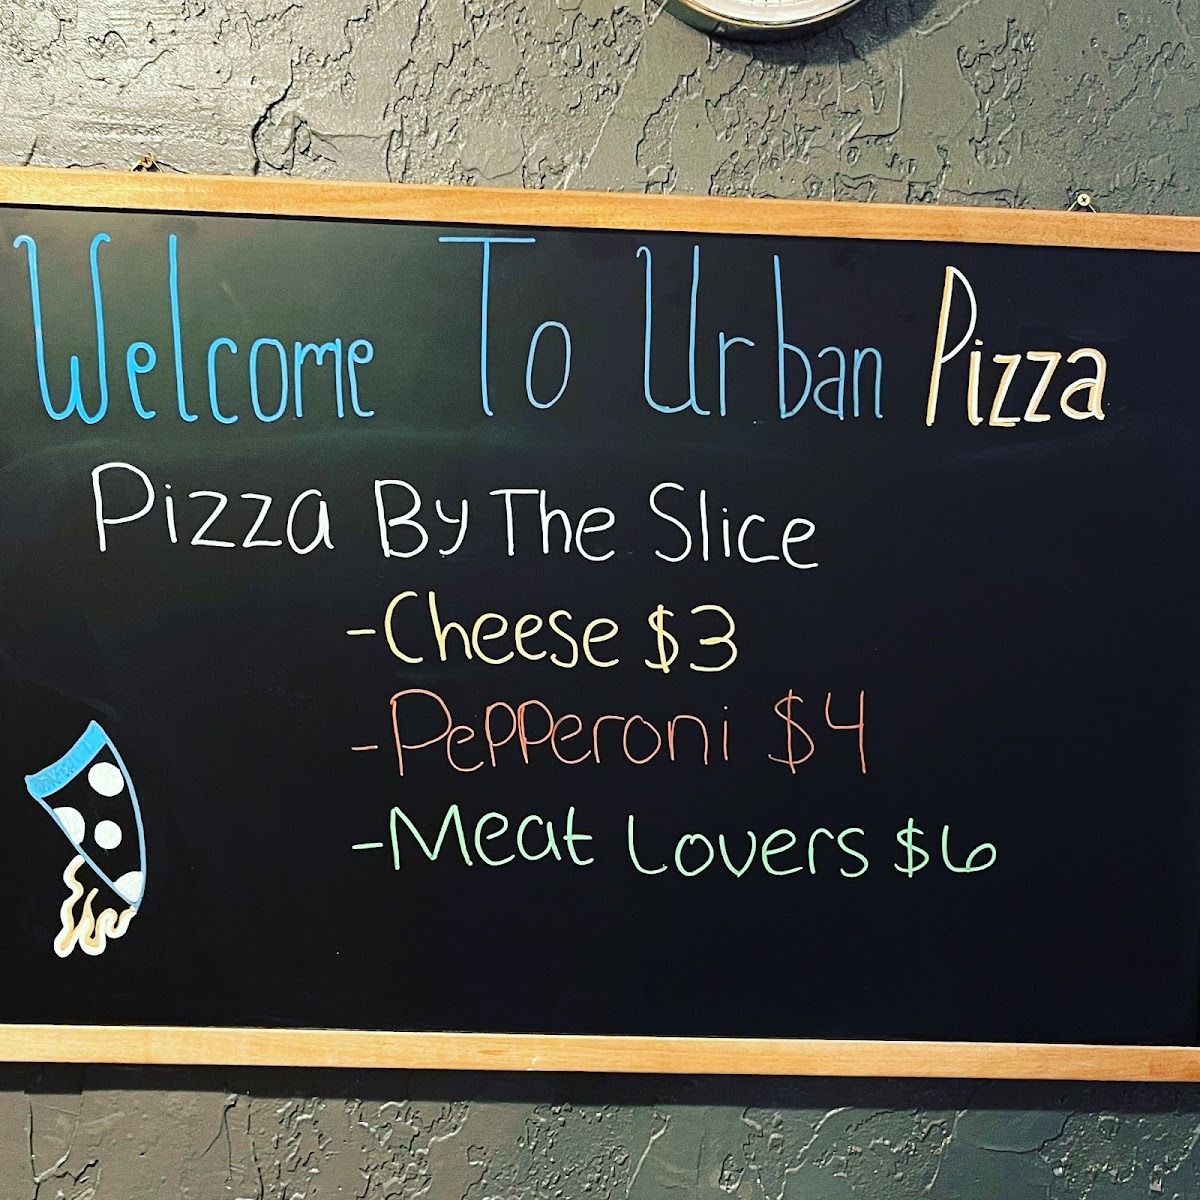 Welcome To Urban Pizza
Pizza By The Slice
-Cheese $3
-Pepperoni $4
-Meat Lovers $6